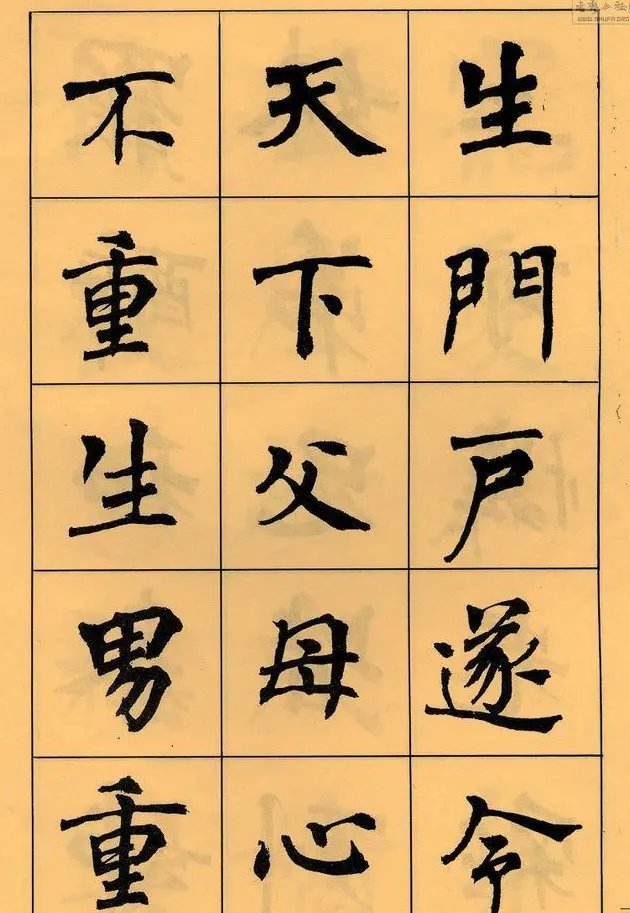 生門戶遂令
天下父母心
不重生男重
WWW.SHUFA.ORG